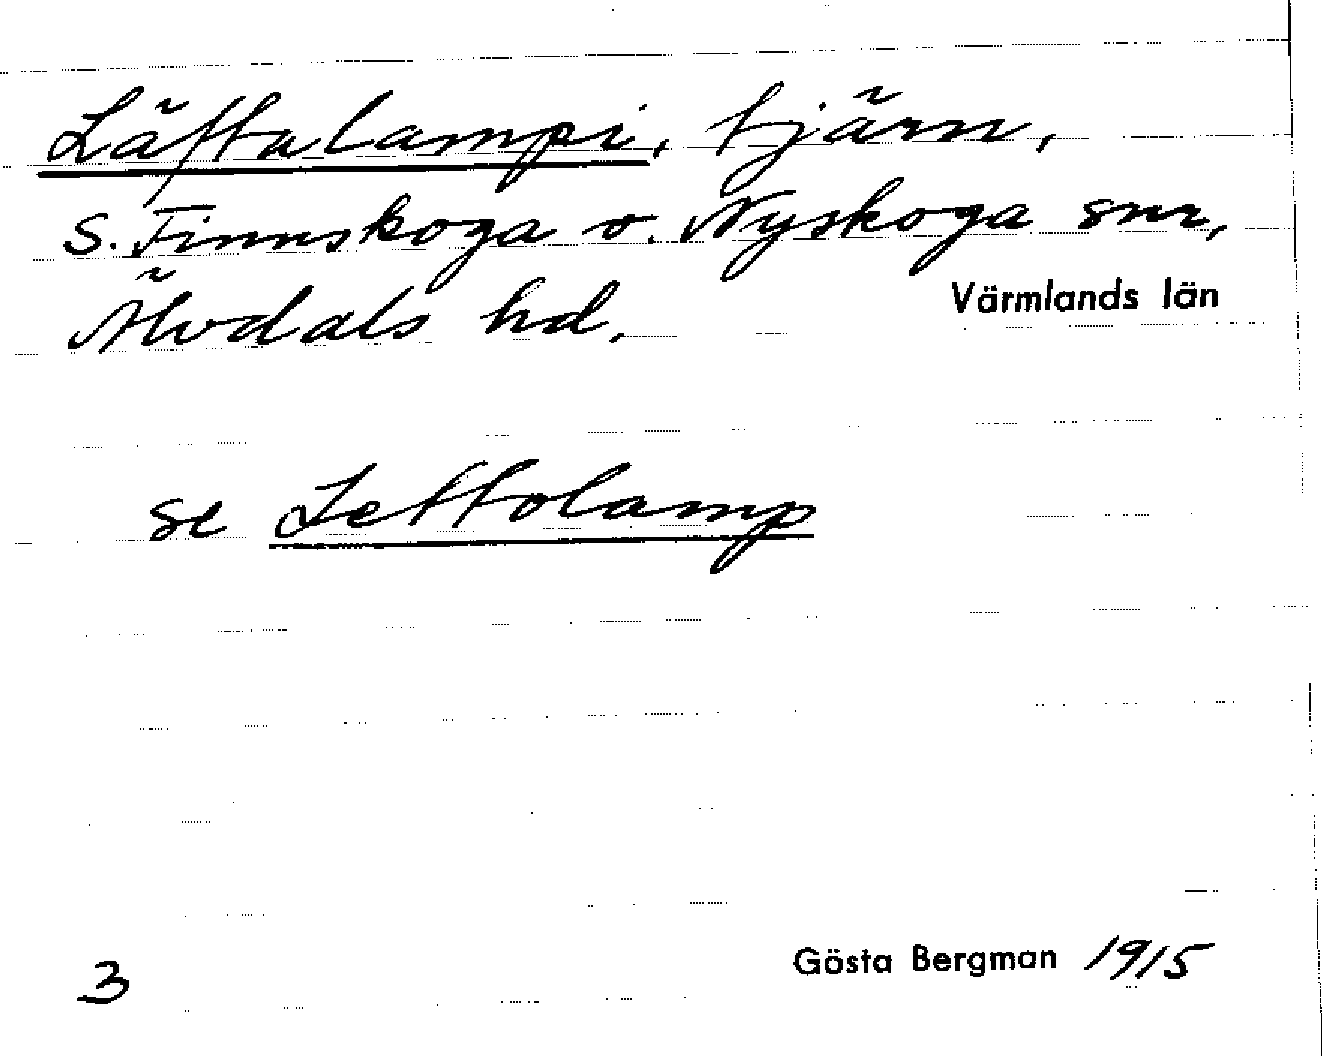 Läftalampi, tjärn,
S. Finnskoga o. Nyskoga snr,
Älvdals hd.
Värmlands län
se Lettolamp
3
Gösta Bergman 1915